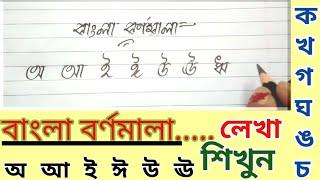 বাংলা বর্ণমালা-
অ আ ই ঈ উ ঊ ঋ
বাংলা বর্ণমালা..... লেখা
অ আ ই ঈ উ ঊ শিখুন
ক
খ
গ
ঘ
ঙ
চ